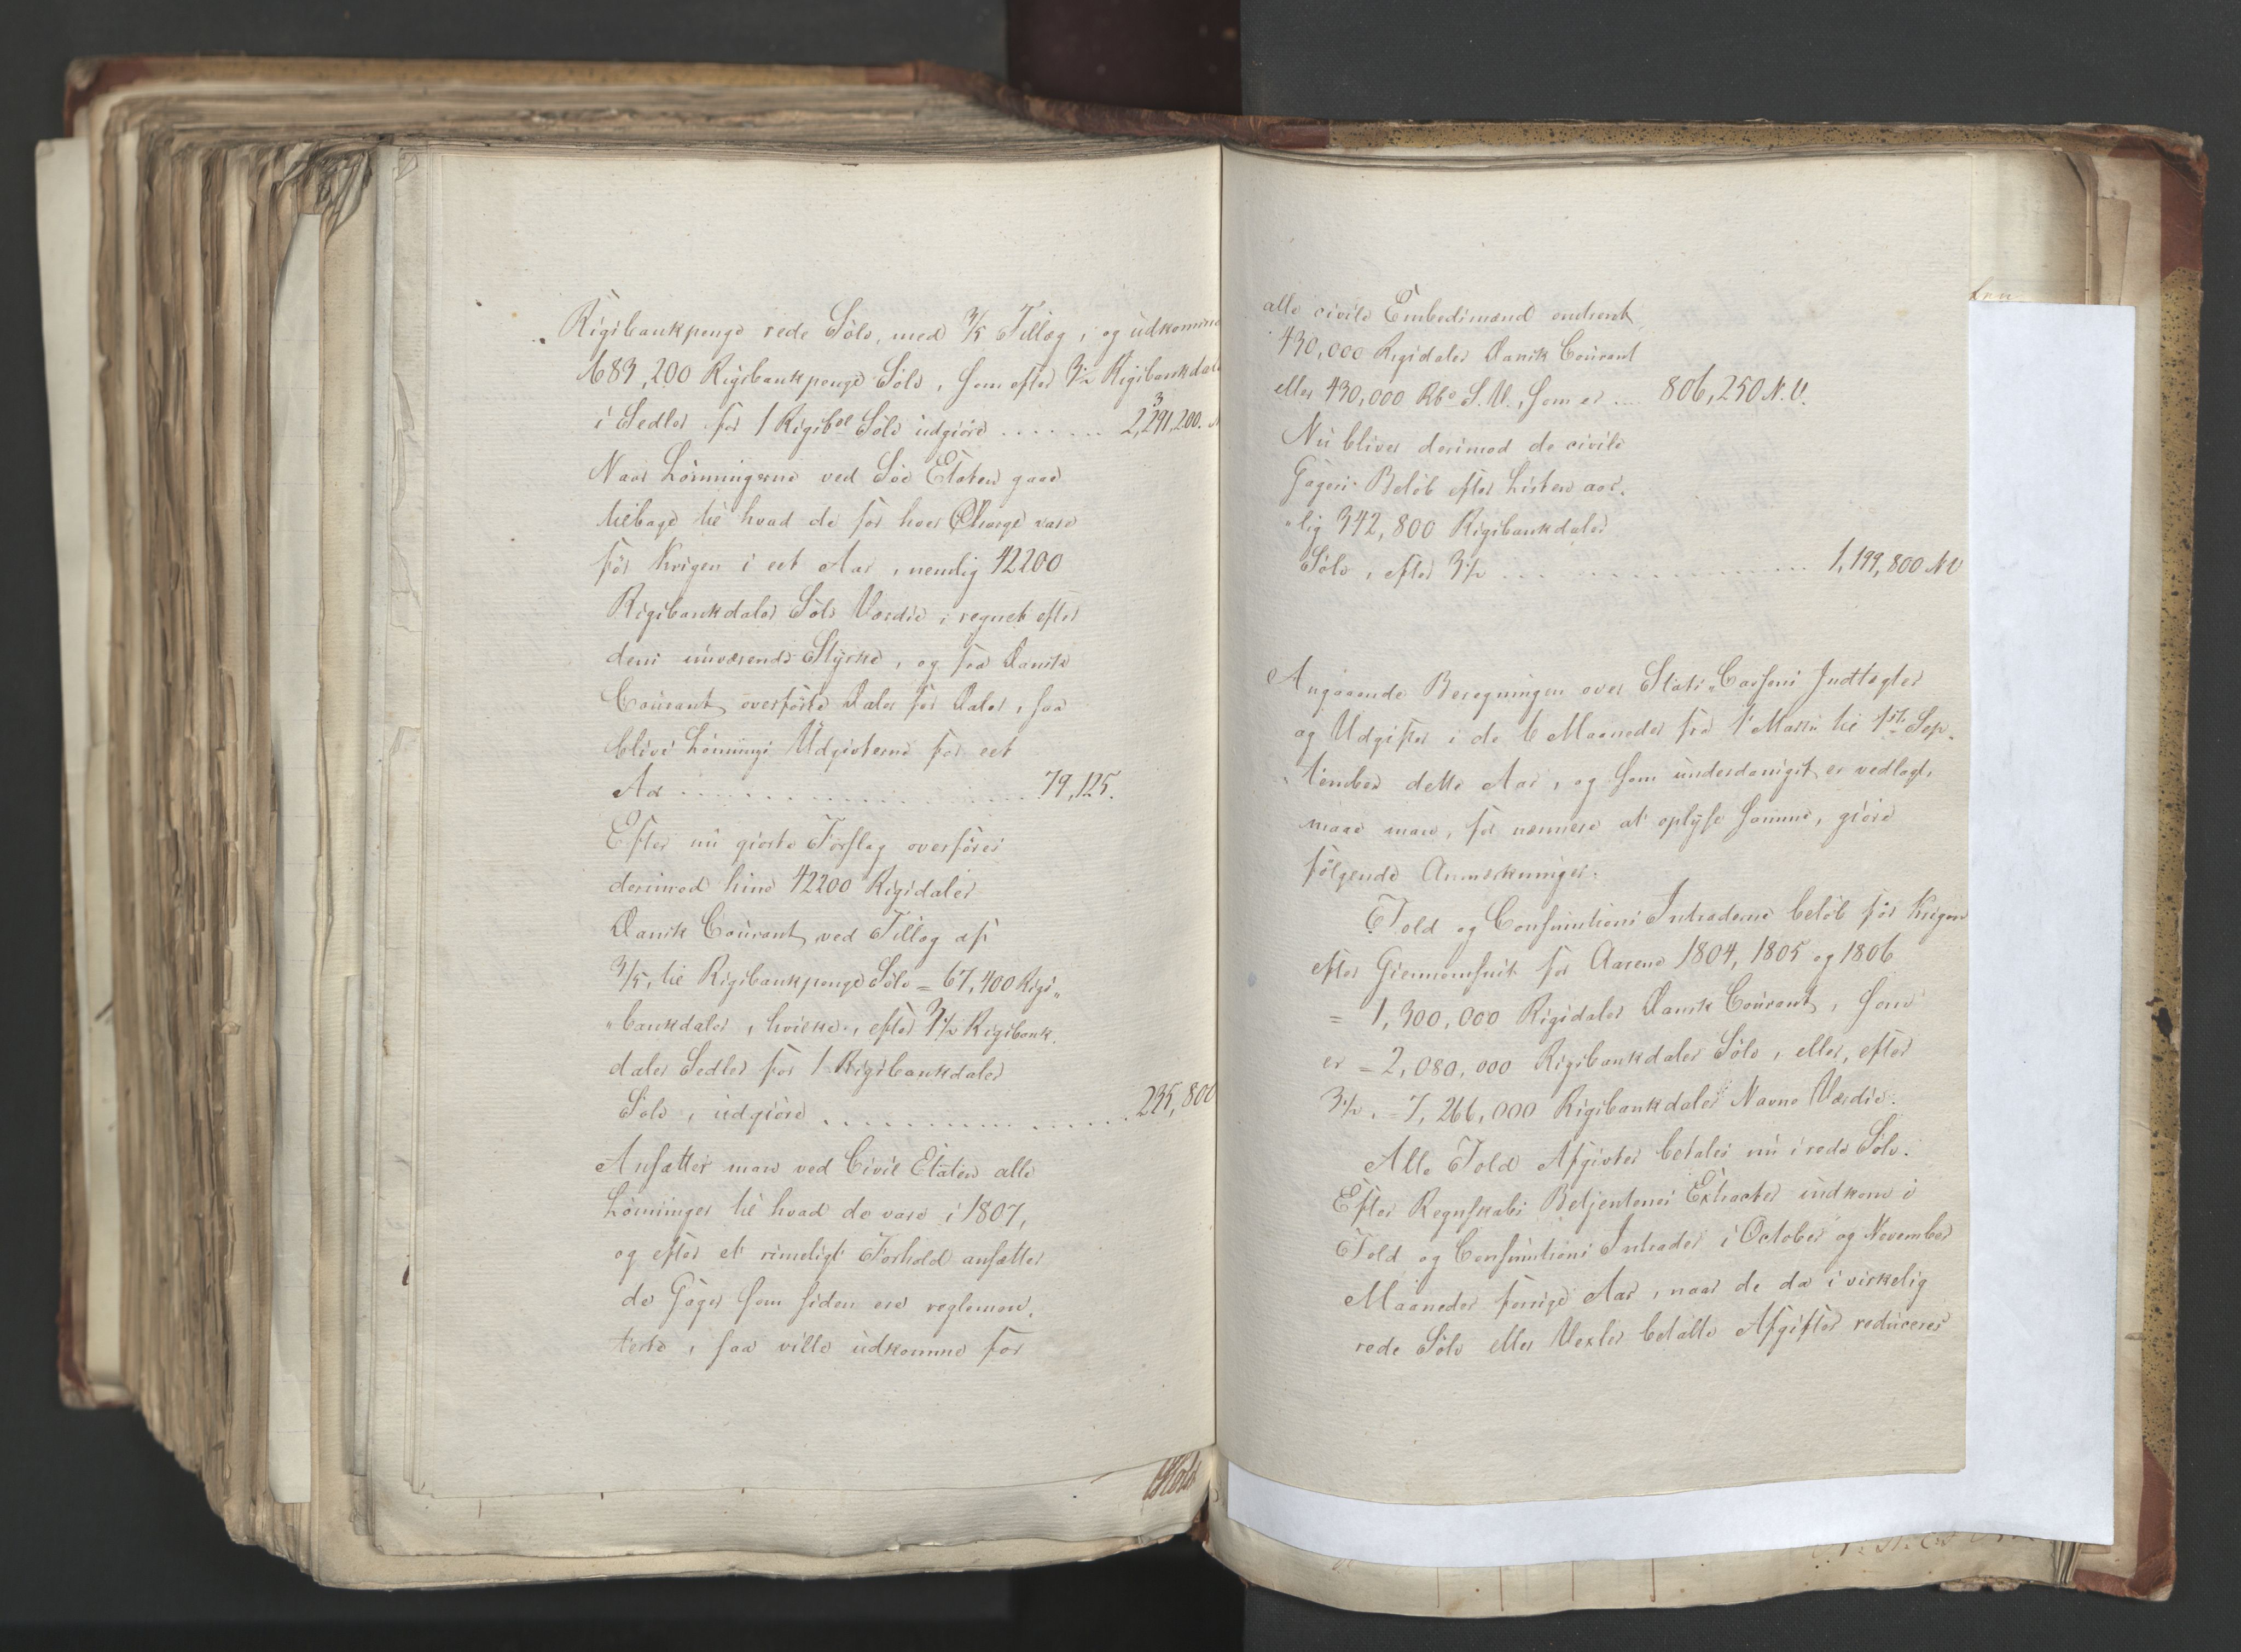 Rigsbankpenge rede Sølv, med 3/5 Tillæg, og udkomme
683,200 Rigsbankpenge Sølv, som efter 3½ Rigsbankdaler
i Sedler for 1 Rigsbdl Sølv udgiøre ....... 2,391,200.
Naar Lønningerne ved Søe Etaten gaae
tilbage til hvad de for hver Charge vare
før Krigen i eet Aar, nemlig 42200
Rigsbankdaler Sølv Værdie, regnet efter
dens nuværende Styrke, og fra Dansk
Courant overførte Daler for Daler, saa
blive Lønnings Udgivterne for eet
Aar ............... 79,125.
Efter nu giorte Forslag overføres
derimod hine 42200 Rigsdaler
Dansk Courant, ved Tillæg af
3/5, til Rigsbankpenge Sølv = 67,400 Rigs„
„bankdaler, hvilke, efter 3½ Rigsbank.
daler Sedler for 1 Rigsbankdaler
Sølv, udgiøre ............... 235,800
Ansætter man ved Civil Etaten alle
Lønninger til hvad de vare i 1807,
og efter et rimeligt Forhold ansætter
de Gager som siden ere reglemen„
terte, saa ville udkomme for
alle civile Embedsmænd omtrent
430,000 Rigsdaler Dansk Courant
eller 430,000 Rbd S.V., som er .... 806,250 N.V.
Nu bliver derimod de civile
Gagers Beløb efter Listen aar„
„lig 342,800 Rigsbankdaler
Sølv, efter 3½ ............... 1,199,800 NV
Angaaende Beregningen over Stats„Cassens Indtægter
og Udgifter i de 6 Maaneder fra 1 Marts til 1ste Sep„
„tember dette Aar, og som underdanigst er vedlagt,
maae man, for nærmere at oplyse samme, giøre
følgende Anmærkninger.
Told og Consumtions Intraderne beløb før Krigen
efter Giennemsnit for Aarene 1804, 1805 og 1806
= 1,300,000 Rigsdaler Dansk Courant, som
er = 2,080,000 Rigsbankdaler Sølv, eller, efter
3½, = 7,266,000 Rigsbankdaler Navne Værdie.
Alle Told Afgivter betales nu i rede Sølv.
Efter Regnskabs Betjentenes Extracter indkom i
Told og Consumtions Intrader i October og November
Maaneder forrige Aar, naar de da i virkelig
rede Sølv eller Vexler betalte Afgifter reduceres